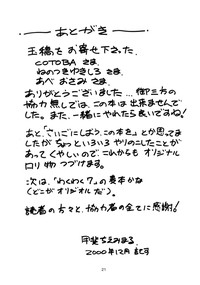 あとがき
玉稿をお寄せ下さた、
COTOBA さま
ねのつきゆきしろ さま、
あべ おさみ さま、
ありがとうございました…御三方の
協力無しでは、この本は出来ませんで
した。また、一緒にやれたら良いですね!
あと、「さいごにしよう、この本さ」とか思ってま
したがちょっといろいろ やりのこしたことが
あって くやしいので これからも オリジナル
ロリ物 つづけます。
次は、「わくわく7」の 真本かな
(どこがオリジナルだ)。
読者の方々と、協力者の全てに感謝!
2000年12月 記す
21